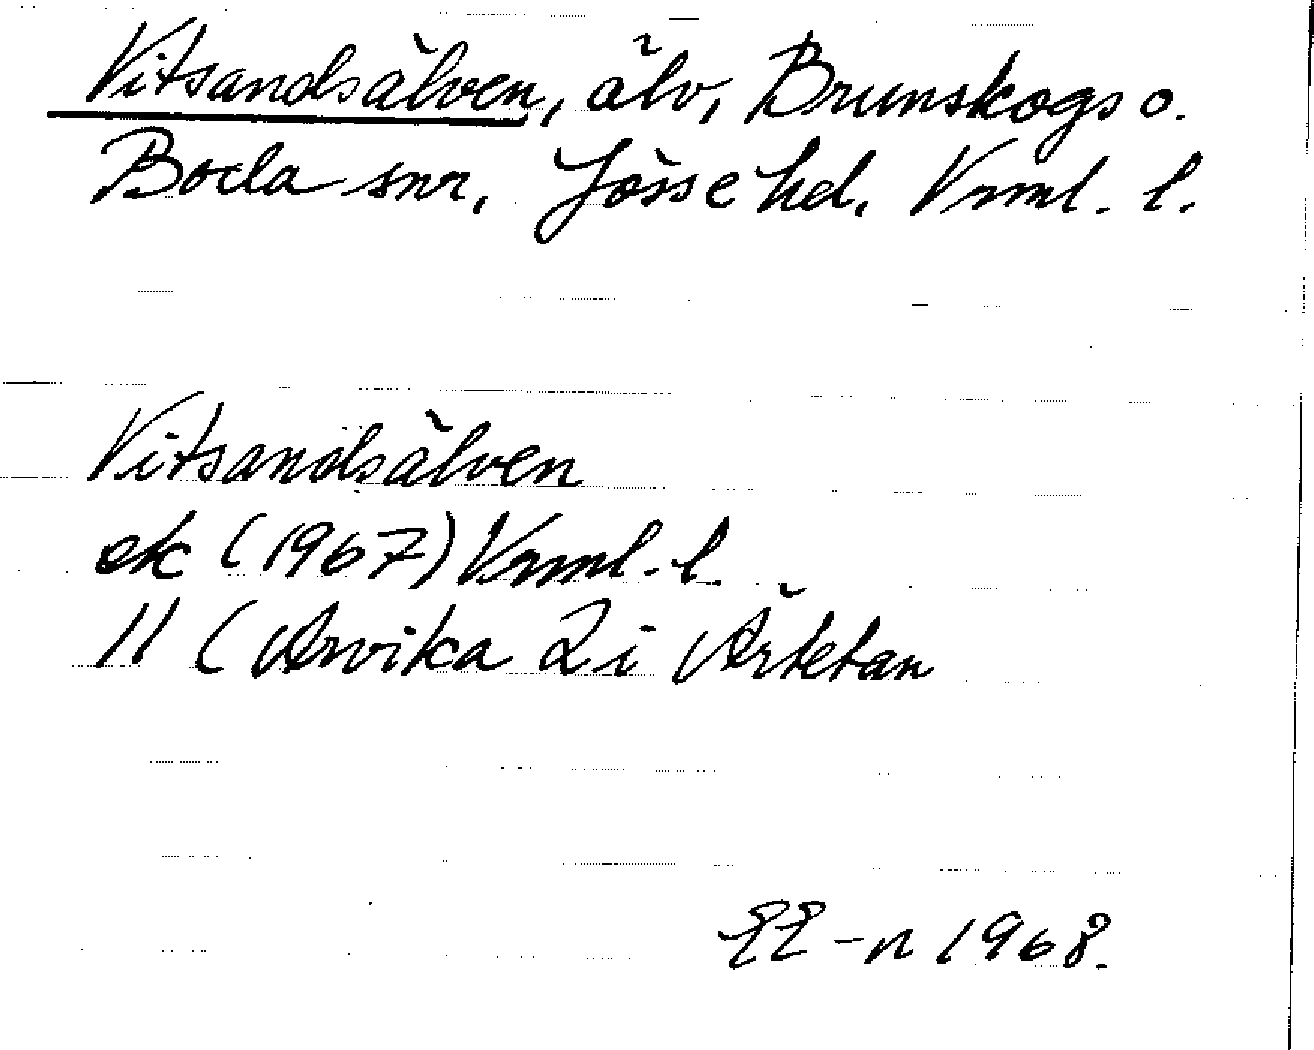 Vitsandsälven, älv, Brunskogs o.
Boda snr, Jösse hd. Vrml. l.
Vitsandsälven
ek (1967) Vrml. l.
11 (Arvika 2 i Ärtetan
EE-n 1968.